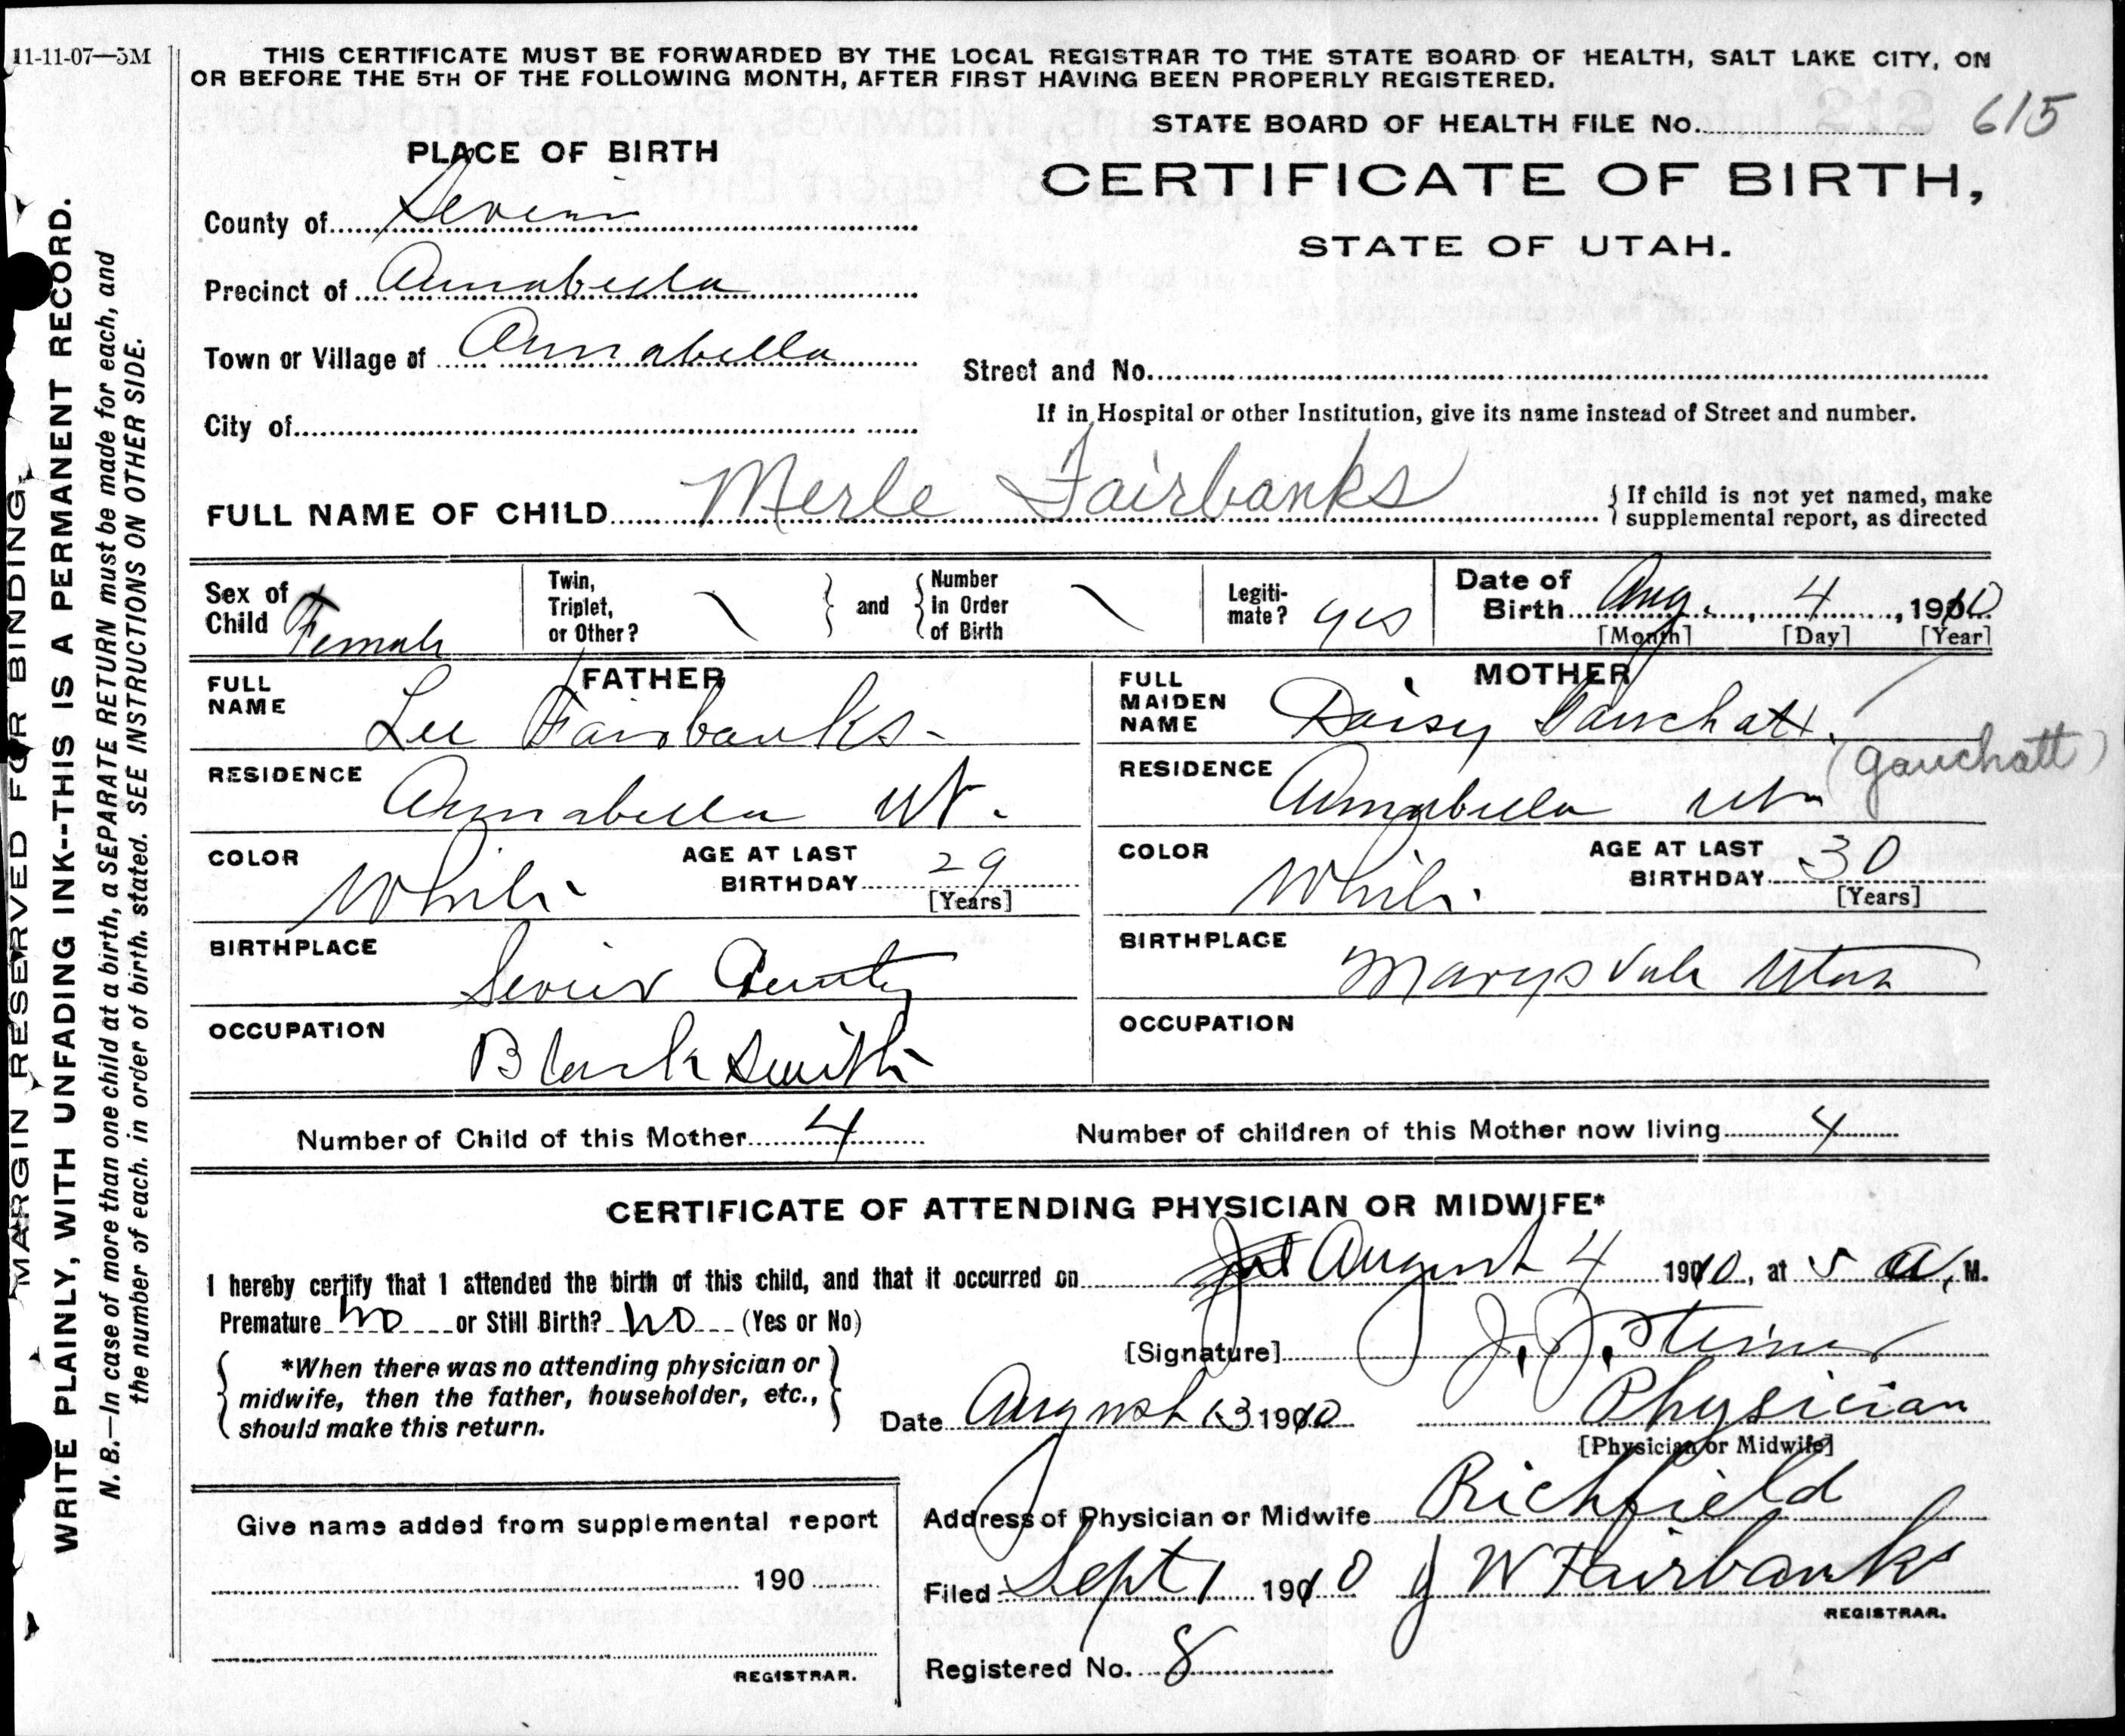 11-11-07—5M
THIS CERTIFICATE MUST BE FORWARDED BY THE LOCAL REGISTRAR TO THE STATE BOARD OF HEALTH, SALT LAKE CITY, ON
OR BEFORE THE 5TH OF THE FOLLOWING MONTH, AFTER FIRST HAVING BEEN PROPERLY REGISTERED.
STATE BOARD OF HEALTH FILE No. 615
PLACE OF BIRTH
CERTIFICATE OF BIRTH,
STATE OF UTAH.
County of Sevier
Precinct of Annabella
Town or Village of Annabella
Street and No.
If in Hospital or other Institution, give its name instead of Street and number.
City of
FULL NAME OF CHILD Merle Fairbanks
{ If child is not yet named, make
supplemental report, as directed
Sex of Child Female
Twin, Triplet, or Other? \ } and { Number in Order of Birth \
Legiti-mate? yes
Date of Birth Aug. 4, 1910
[Month] [Day] [Year]
FATHER
FULL NAME Lee Fairbanks
RESIDENCE Annabella Ut.
COLOR White
AGE AT LAST BIRTHDAY 29
[Years]
BIRTHPLACE Sevier County
OCCUPATION Blacksmith
MOTHER
FULL MAIDEN NAME Daisy Gauchatt.
(Gauchatt)
RESIDENCE Annabella Ut
COLOR White
AGE AT LAST BIRTHDAY 30
[Years]
BIRTHPLACE Marysvale Utah
OCCUPATION
Number of Child of this Mother 4
Number of children of this Mother now living 4
CERTIFICATE OF ATTENDING PHYSICIAN OR MIDWIFE*
I hereby certify that I attended the birth of this child, and that it occurred on August 4 1910, at 5 A. M.
Premature No or Still Birth? No (Yes or No)
{ *When there was no attending physician or
midwife, then the father, householder, etc.,
should make this return. }
[Signature] J. J. Steiner
Date August 13 1910
Physician
[Physician or Midwife]
Address of Physician or Midwife Richfield
Filed Sept 1 1910 J W Fairbanks
REGISTRAR.
Registered No. 8
Give name added from supplemental report
190
REGISTRAR.
MARGIN RESERVED FOR BINDING.
WRITE PLAINLY, WITH UNFADING INK--THIS IS A PERMANENT RECORD.
N. B.—In case of more than one child at a birth, a SEPARATE RETURN must be made for each, and
the number of each, in order of birth, stated. SEE INSTRUCTIONS ON OTHER SIDE.